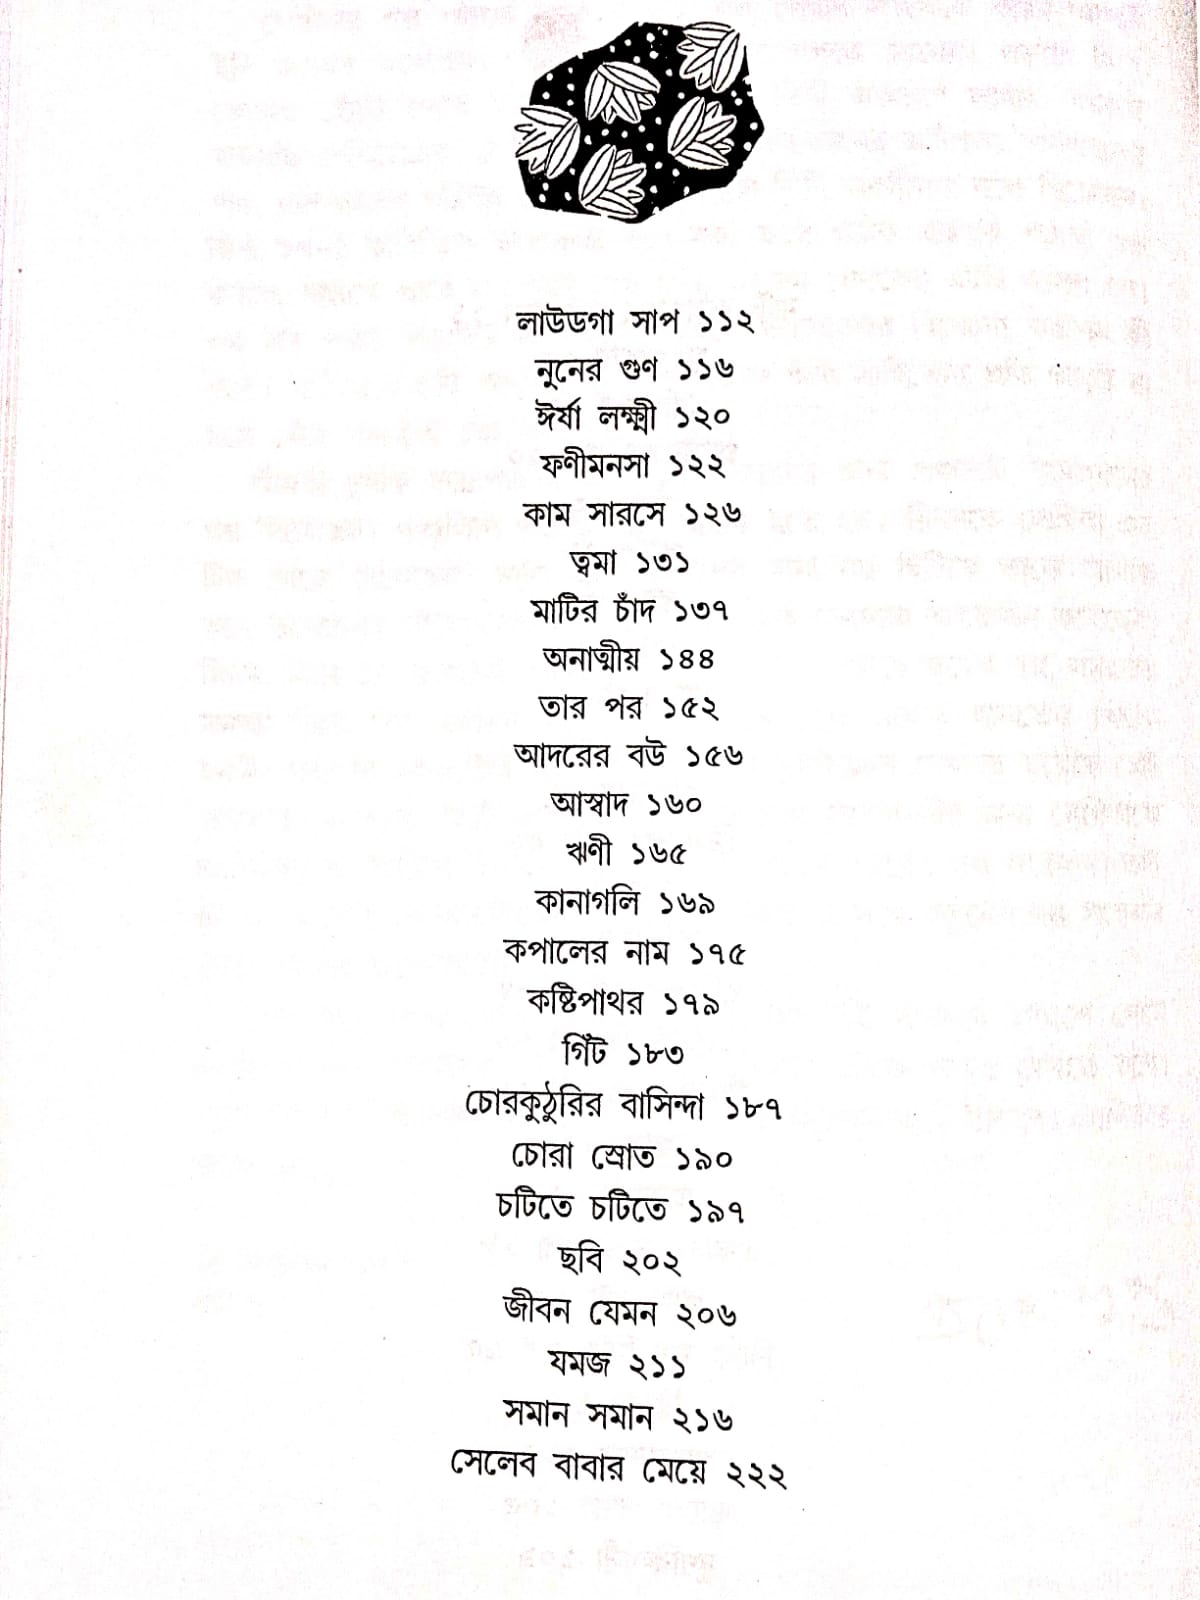 লাউডগা সাপ ১১২
নুনের গুণ ১১৬
ঈর্ষা লক্ষ্মী ১২০
ফণীমনসা ১২২
কাম সারসে ১২৬
ত্বমা ১৩১
মাটির চাঁদ ১৩৭
অনাত্মীয় ১৪৪
তার পর ১৫২
আদরের বউ ১৫৬
আস্বাদ ১৬০
ঋণী ১৬৫
কানাগলি ১৬৯
কপালের নাম ১৭৫
কষ্টিপাথর ১৭৯
গিঁট ১৮৩
চোরকুঠুরির বাসিন্দা ১৮৭
চোরা স্রোত ১৯০
চটিতে চটিতে ১৯৭
ছবি ২০২
জীবন যেমন ২০৬
যমজ ২১১
সমান সমান ২১৬
সেলেব বাবার মেয়ে ২২২